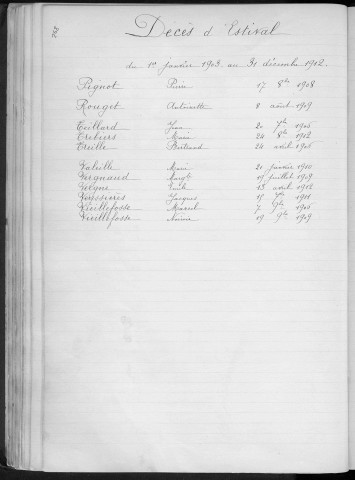 Décès d'Estival
du 1er janvier 1903 au 31 décembre 1912.
Pignot Pierre 17 8bre 1908
Rouget Antoinette 8 août 1909
Teillard Jean 20 1906
Marie 24 8bre 1912
Treille Bertrand 24 avril 1906
Valeille Marie 20 janvier 1910
Vergnaud Margte 19 juillet 1909
13 avril 1912
Jacques 15 1911
Vieillefosse Marcel 7 9bre 1906
Vieillefosse 19 9bre 1909